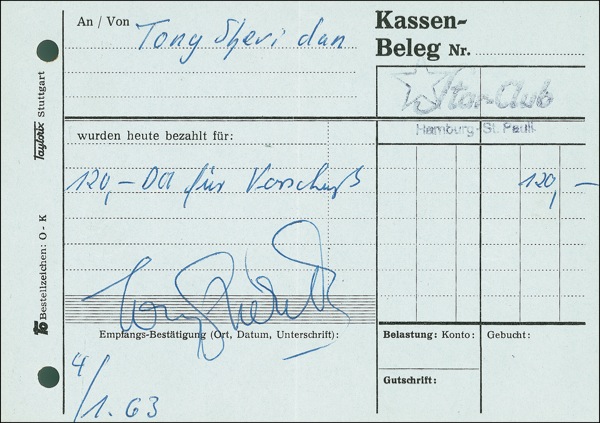 An / Von Tony Sheridan
Kassen-
Beleg Nr.
Star-Club
Hamburg-St. Pauli
wurden heute bezahlt für:
120,- DM für Vorschuß
120,-
Tony Sheridan
Empfangs-Bestätigung (Ort, Datum, Unterschrift):
4/1.63
Belastung: Konto:
Gebucht:
Gutschrift:
Taylorix Stuttgart
Bestellzeichen: O - K